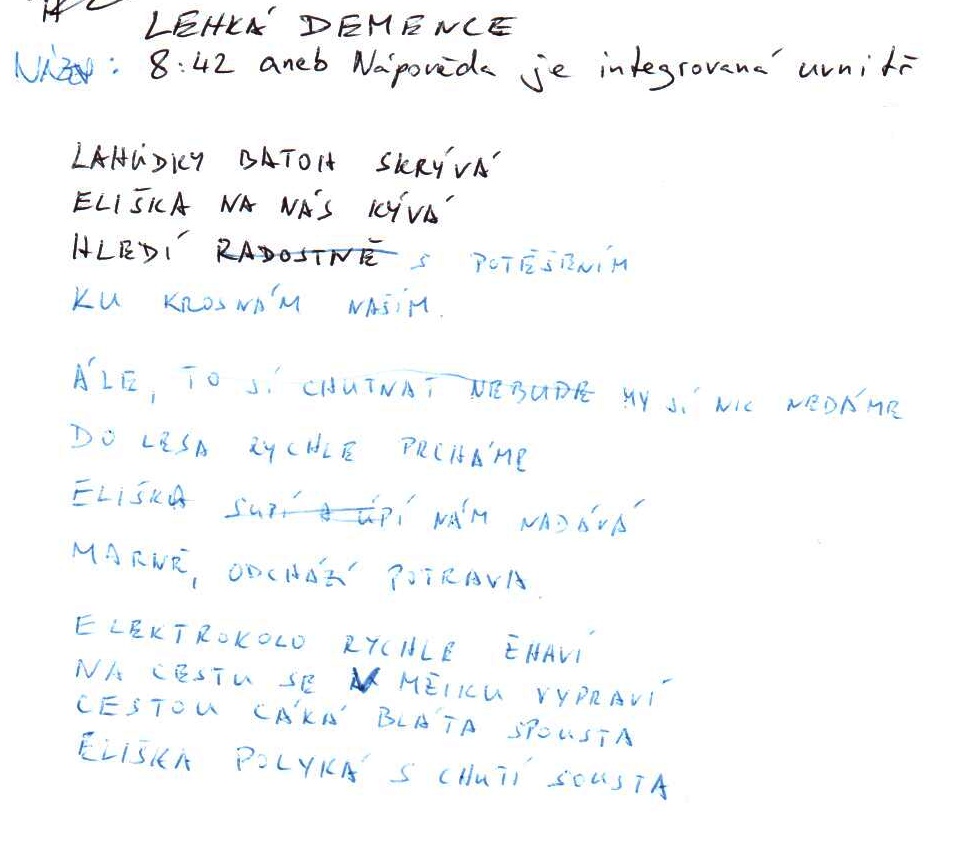 LEHKÁ DEMENCE
NÁZEV: 8:42 aneb Nápověda je integrovaná uvnitř
LAHŮDKY BATOH SKRÝVÁ
ELIŠKA NA NÁS KÝVÁ
HLEDÍ RADOSTNĚ S POTĚŠENÍM
KU KROSNÁM NAŠIM.
ÁLE, TO JÍ CHUTNAT NEBUDE MY JÍ NIC NEDÁME
DO LESA RYCHLE PRCHÁME
ELIŠKA SUPÍ A ÚPÍ NÁM NADÁVÁ
MARNĚ, ODCHÁZÍ POTRAVA.
ELEKTROKOLO RYCHLE
NA CESTU SE V MŽIKU VYPRAVÍ
CESTOU CÁKÁ BLÁTA SPOUSTA
ELIŠKA POLYKÁ S CHUTÍ SOUSTA